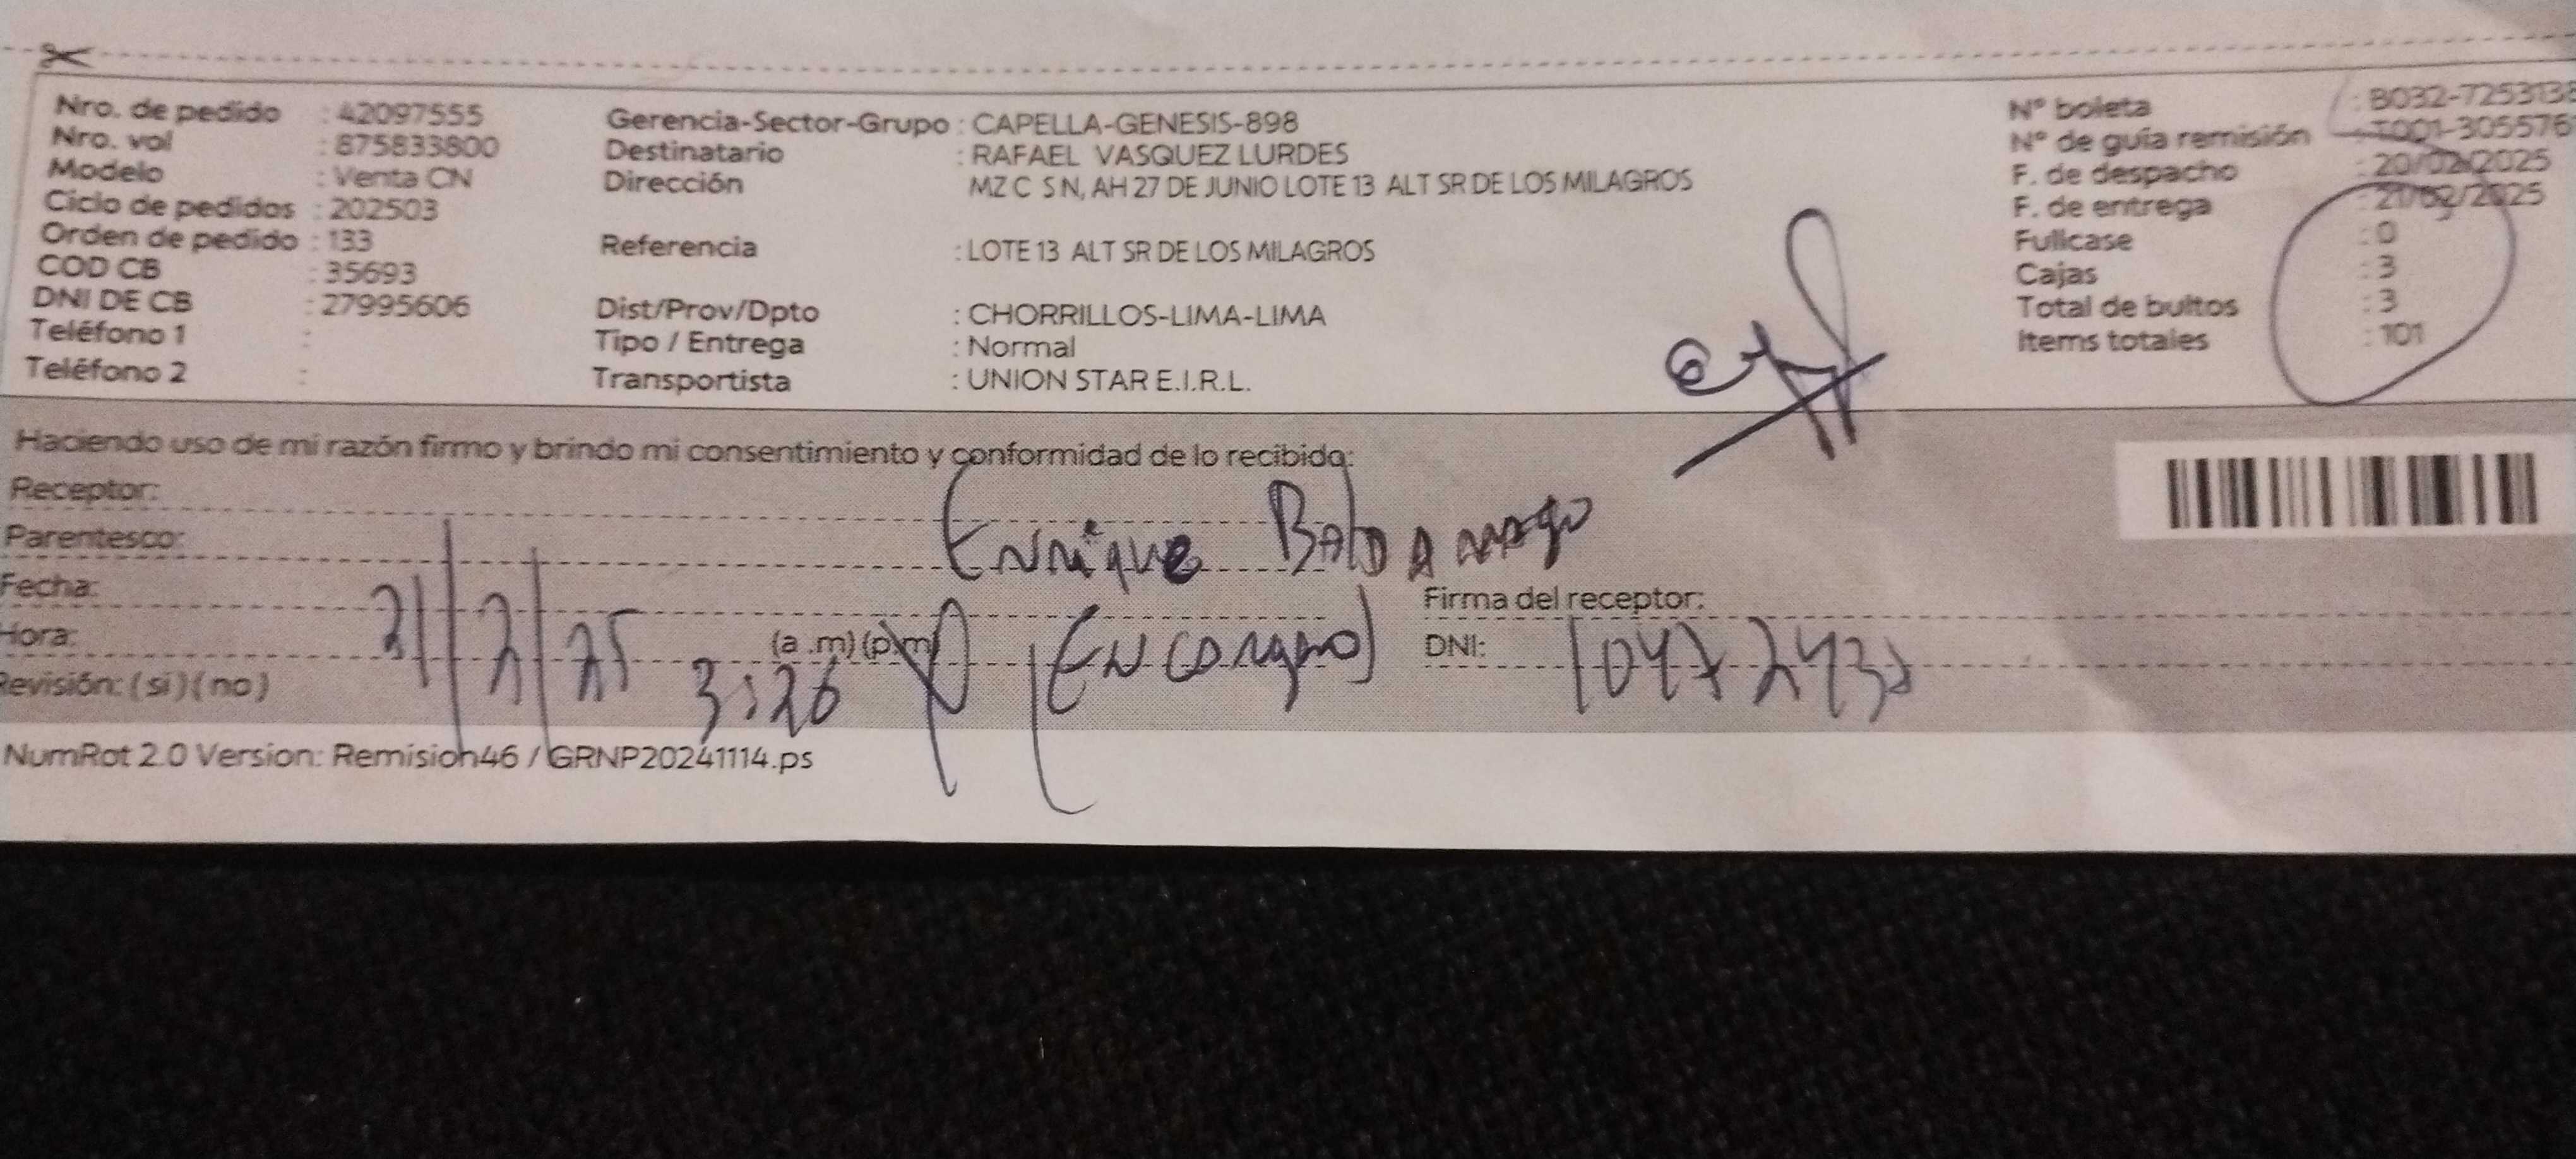 Nro. de pedido : 42097555
Nro. vol : 875833800
Modelo : Venta CN
Ciclo de pedidos : 202503
Orden de pedido : 133
COD CB : 35693
DNI DE CB : 27995606
Teléfono 1 :
Teléfono 2 :
Gerencia-Sector-Grupo : CAPELLA-GENESIS-898
Destinatario : RAFAEL VASQUEZ LURDES
Dirección MZ C S N, AH 27 DE JUNIO LOTE 13 ALT SR DE LOS MILAGROS
Referencia : LOTE 13 ALT SR DE LOS MILAGROS
Dist/Prov/Dpto : CHORRILLOS-LIMA-LIMA
Tipo / Entrega : Normal
Transportista : UNION STAR E.I.R.L.
N° boleta : B032-7253138
N° de guía remisión : T001-305576
F. de despacho : 20/02/2025
F. de entrega : 21/02/2025
Fullcase : 0
Cajas : 3
Total de bultos : 3
Items totales : 101
Haciendo uso de mi razón firmo y brindo mi consentimiento y conformidad de lo recibido:
Receptor:
Parentesco: Enrique
Fecha: 21/2/25
Firma del receptor:
Hora: (a .m) (p.m) 3:26
DNI:
Revisión: ( si ) ( no )
NumRot 2.0 Version: Remision46 / GRNP20241114.ps